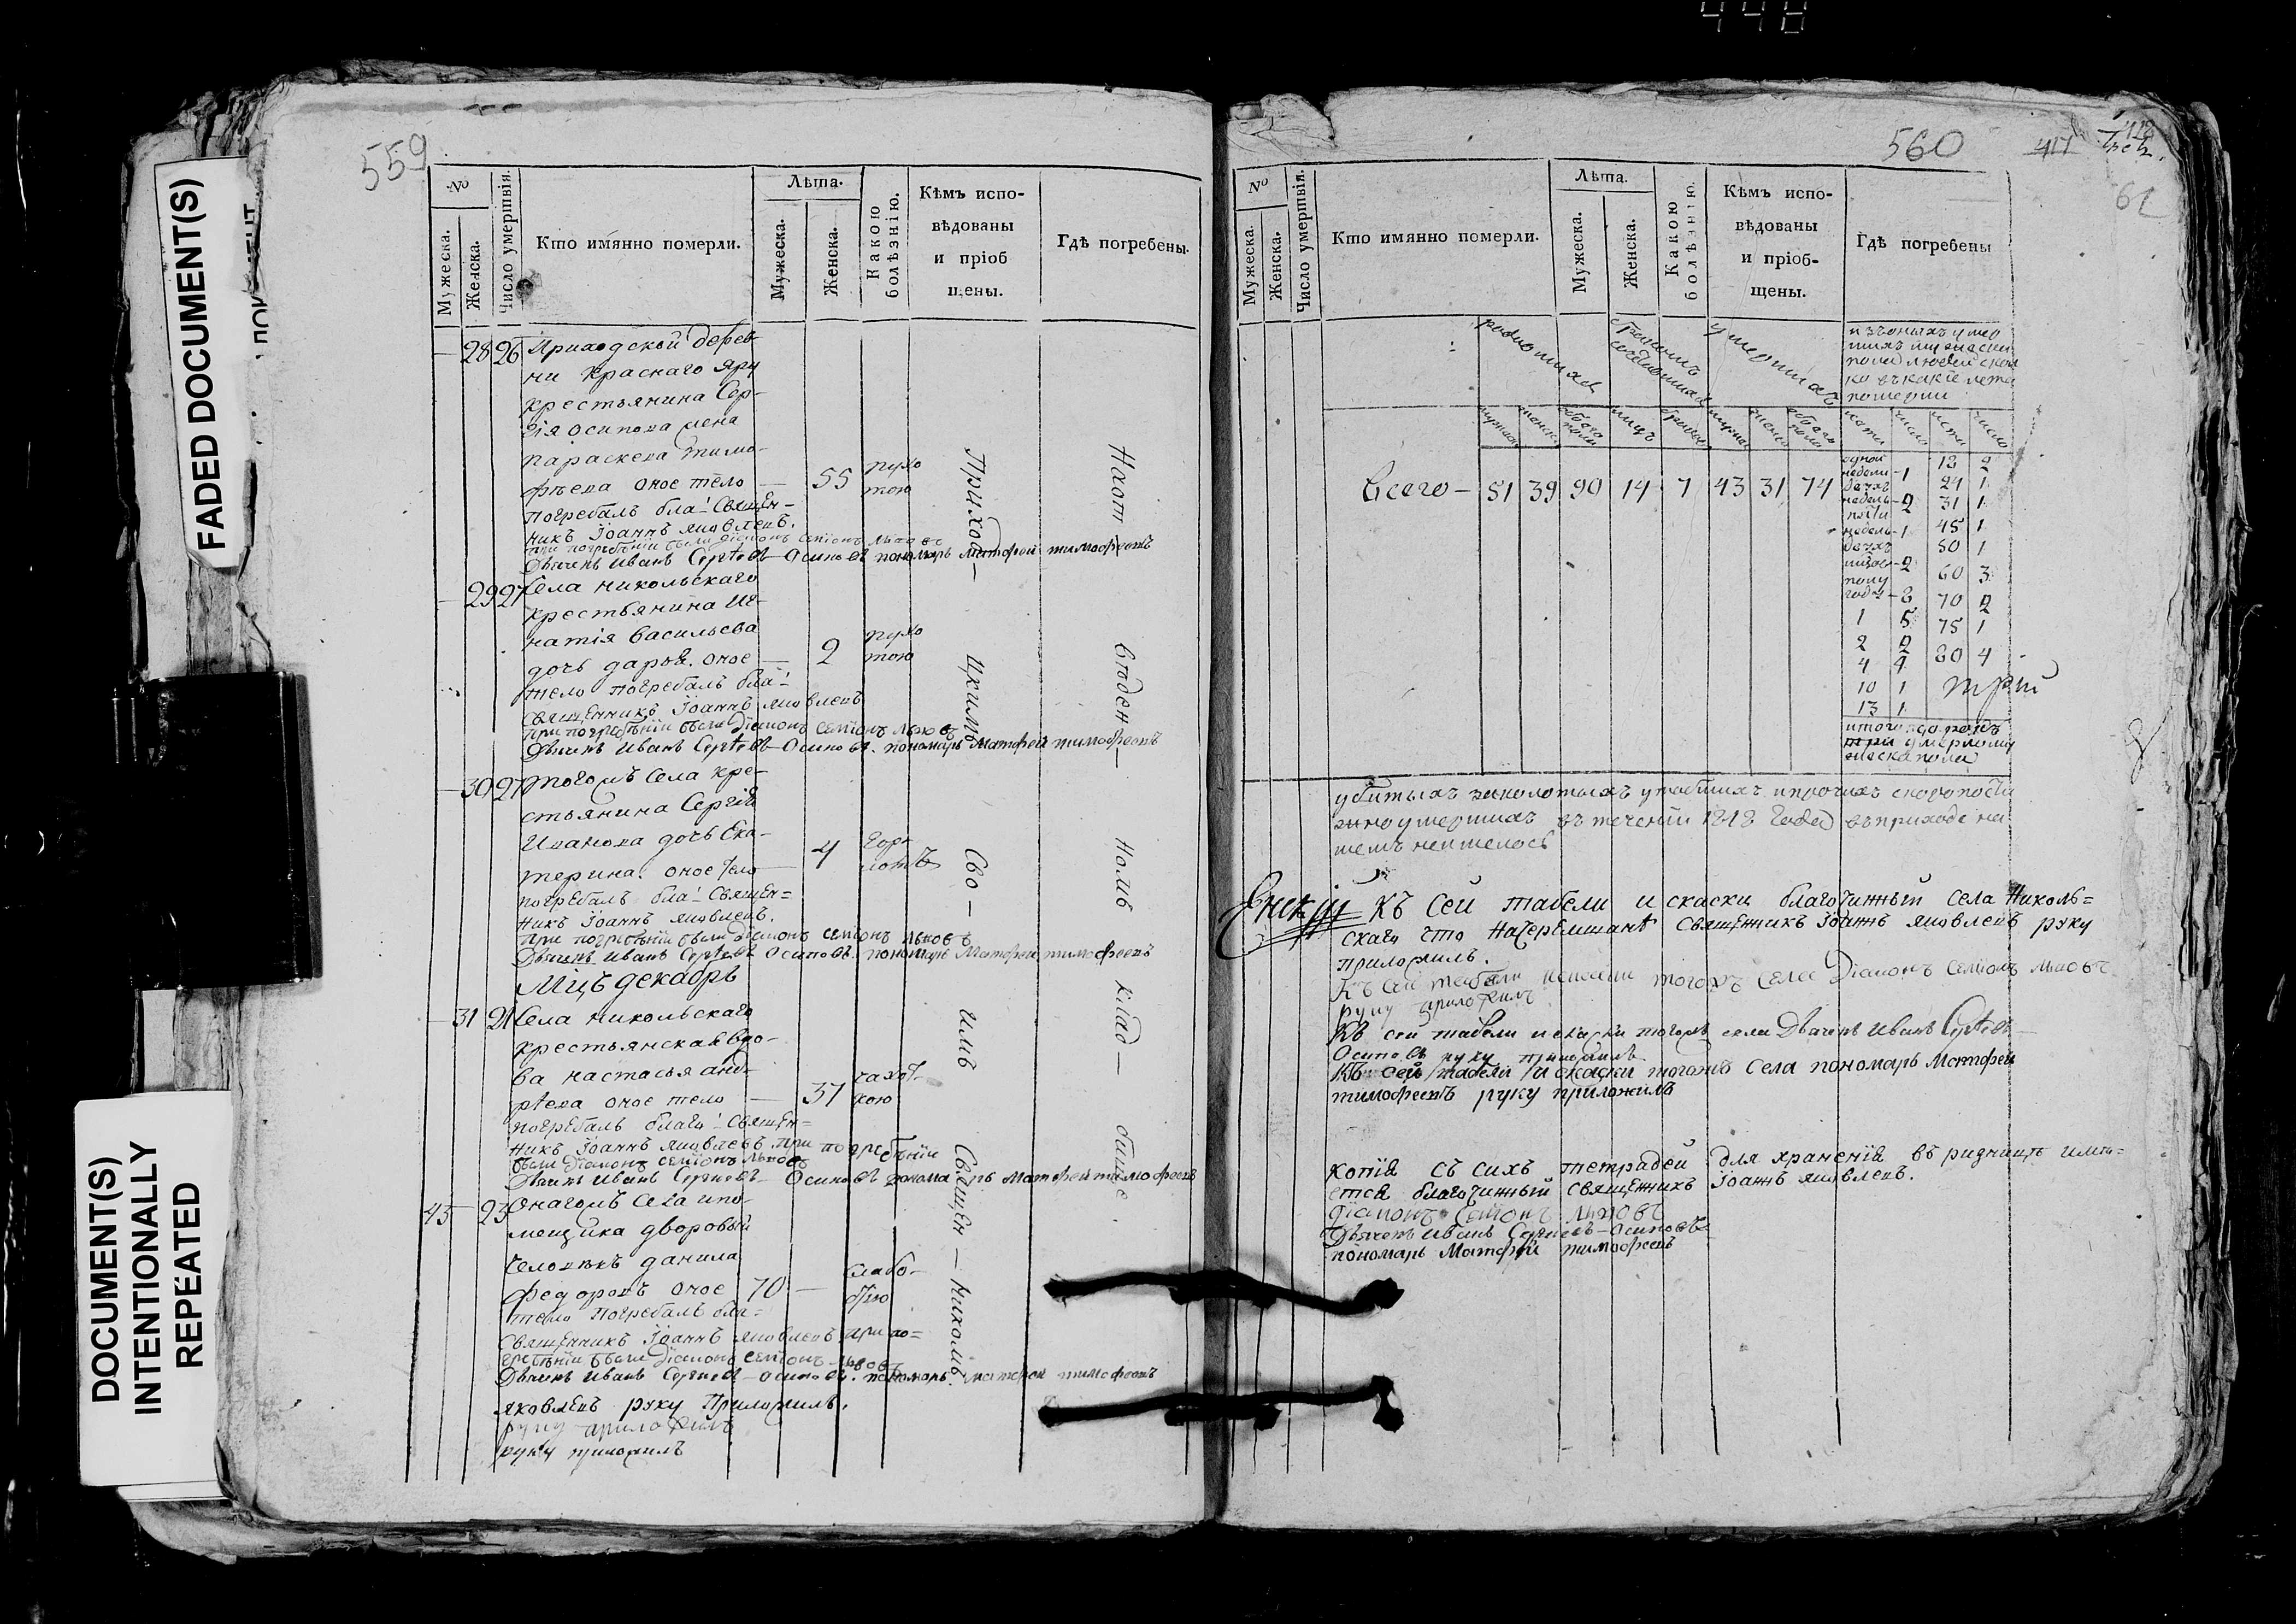 448
FADED DOCUMENT(S)
DOCUMENT(S)
INTENTIONALLY
REPEATED
559
№
Мужеска.
Женска.
Число умертвія.
Кто имянно померли.
Лѣта.
Мужеска.
Женска.
Какою болѣзнію.
Кѣмъ испо-
вѣдованы
и пріоб
щены.
Гдѣ погребены.
— 28 26 Приходской дерев-
ни Краснаго Яру
крестьянина Сер-
гія Осипова жена
Параскева Тимо-
фѣева оное тѣло — 55
погребалъ бла: Священ-
никъ Іоаннъ Яковлевъ.
при погребѣніи были Діаконъ Семіонъ Львовъ
Дьячекъ Иванъ Сергѣевъ Осиповъ пономарь Матфей Тимофеевъ
— 29 27 Села Никольскаго
крестьянина Иг-
натія Васильева
дочь Дарья. оное — 2
тело погребалъ бла:
Священникъ Іоаннъ Яковлевъ
при погребѣніи были Діаконъ Семіонъ Львовъ
Дьячекъ Иванъ Сергѣевъ Осиповъ. пономарь Матфей Тимофеевъ
— 30 27 Тогожъ Села кре-
стьянина Сергія
Иванова дочь Ека-
терина. оное тело — 4
погребалъ бла: Священ=
никъ Іоаннъ Яковлевъ.
при погребѣніи были Діаконъ Семіонъ Львовъ
Дьячекъ Иванъ Сергѣевъ Осиповъ. пономарь Матфей Тимофеевъ
Мцъ декабрь
— 31 21 Села Никольскаго
крестьянская вдо-
ва Настасья Анд-
рѣева оное тело — 37 чахот-
кою
погребалъ благо: Священ=
никъ Іоаннъ Яковлевъ при погребѣніи
были Діаконъ Семіонъ Львовъ
Дьячекъ Иванъ Сергѣевъ Осиповъ пономарь Матфей Тимофеевъ
45 23 Онагожъ Села и по-
мещика дворовый
человѣкъ Данила
Федоровъ оное 70 — слабо-
стію
тело погребалъ бла=
Священникъ Іоаннъ Яковлевъ при по=
гребѣніи были Діаконъ Семіонъ Львовъ
Дьячекъ Иванъ Сергѣевъ Осиповъ. пономарь Матфей Тимофеевъ
Яковлевъ руку Приложилъ.
руку приложилъ
руку приложилъ
Приход-
Цкимъ
Сво —
имъ
Священ — никомъ.
На от —
веден —
номъ
клад —
бище
560
417
62
№
Мужеска.
Женска.
Число умертвія.
Кто имянно померли.
Лѣта.
Мужеска.
Женска.
Какою болѣзнію.
Кѣмъ испо-
вѣдованы
и пріоб-
щены.
Гдѣ погребены
родившихся
умершихъ
изъ оныхъ умер
шихъ мужеска
пола людей скол
ко въ какіе лета
померли
Всего — 51 39 90 14 7 43 31 74
одной недели — 1 18 2
двухъ недель — 2 24 1
31 1
недель — 1 45 1
двухъ 50 1
— 2 60 3
полу году — 70 2
1 5 75 1
2 2 80 4
4 4
10 1
13 1
итого сорокъ
три умершихъ
мужеска пола
убитыхъ заколотыхъ утопшихъ и прочихъ скоропости
жно умершихъ въ теченіи 1818 года въ приходе на
шемъ неимелось
Къ Сей табели и скаски благочинный села Николь=
скаго что на Черемшанѣ Священникъ Іоаннъ Яковлевъ руку
приложилъ.
Къ сей табели и скаски тогожъ села Діаконъ Семіонъ Львовъ
руку приложилъ
Къ сей табели и скаски тогожъ села Дьячекъ Иванъ Сергѣевъ
Осиповъ руку приложилъ
Къ сей табели и скаски тогожъ Села пономарь Матфей
Тимофеевъ руку приложилъ
копія съ сихъ тетрадей для храненія въ ризницѣ имѣ=
ется благочинный священникъ Іоаннъ Яковлевъ.
Діаконъ Семіонъ Львовъ
Дьячекъ Иванъ Сергѣевъ Осиповъ
пономарь Матфей Тимофеевъ